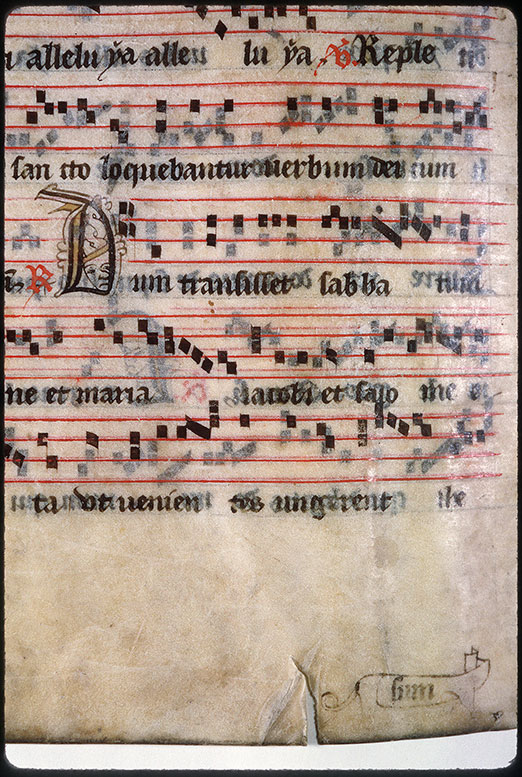 allelu ya alle lu ya ℣ Reple
san cto loquebantur uerbum dei cum
℟ Dum transisset sabba tum
ne et maria iacobi et salo me et
ta vt uenien tes ungerent ihe